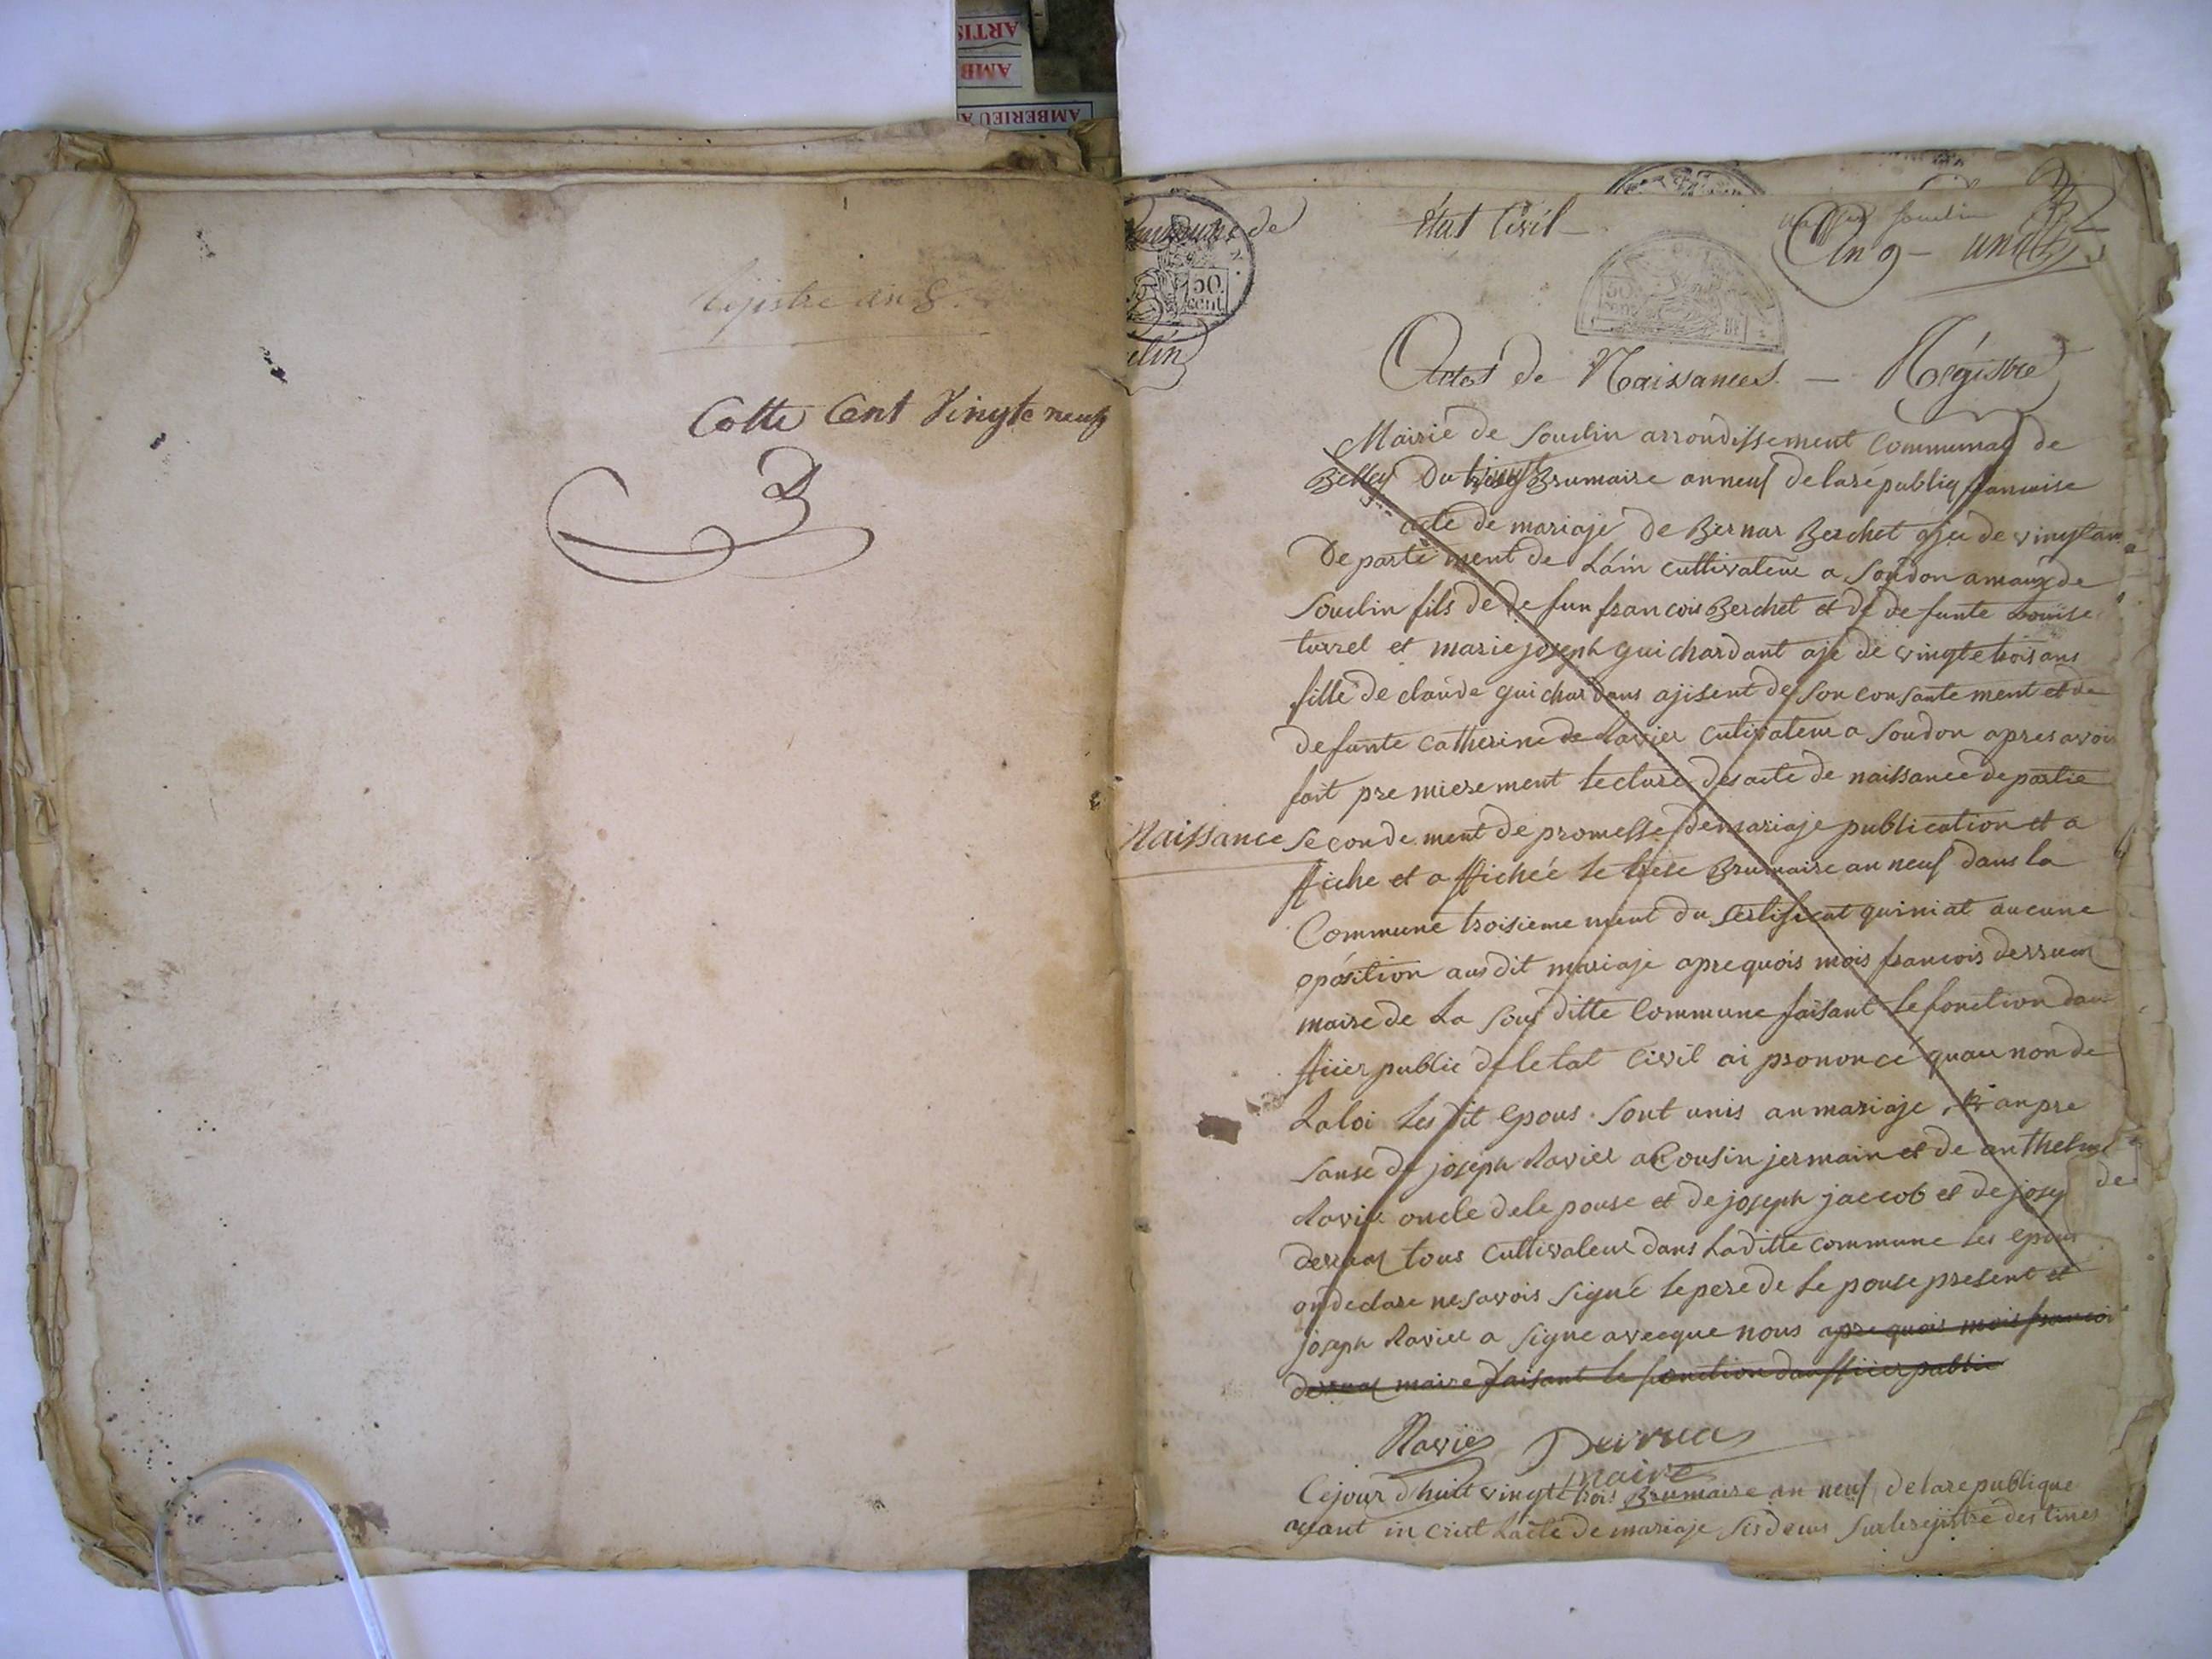 ARTIS
AMB
AMBERIEU A
Registre an 8
Cotte Cent Vingte neuf
Commune de
50
cent.
État Civil
An 9 - unité
50
Actes de Naissances. — Régistre
Mairie de Soudin arrondissement Communal de
Belley Du Brumaire an neuf de la républiq francaise
acte de mariaje de Bernar Berchet ajee de vingt an
De parte ment de Lain cultivateur a Soudon amaux de
Soudin fils de de fun francois Berchet et de de funte Louise
turrel et marie joseph guichardant aje de vingte trois ans
fille de claude guichardans ajisent de son consantement et de
defunte Catherine de Ravier Cultivateur a Soudon apres avoir
fait premierement lecture des acte de naissance de partie
Naissance
Seconde ment de promesse de mariaje publication et a
ffiche et affichée le trese Brumaire an neuf dans la
Commune troisieme ment du sertificat quiniat aucune
oposition ausdit mariaje apre quois mois francois derruaz
maire de La sous ditte Commune faisant le fonction dau
fficier public de letat Civil ai prononcé quau non de
La loi Les dit epous sont unis an mariaje an pre
sanse de joseph Ravier Cousin jermain et de anthelme
Ravier oncle dele pouse et de joseph jaccob et de josep de
derruaz tous Cultivateur dans Laditte commune Les epous
on declare nesavois signé le pere de le pouse present et
joseph Ravier a signe avecque nous apre quois mois francoi
derruaz maire faisant le fonction daufficier public
Ravier Derruaz
maire
Cejour d'huit vingte trois Brumaire an neuf de la republique
ayant in crit Lacte de mariaje sisdesus sur le rejistre destines